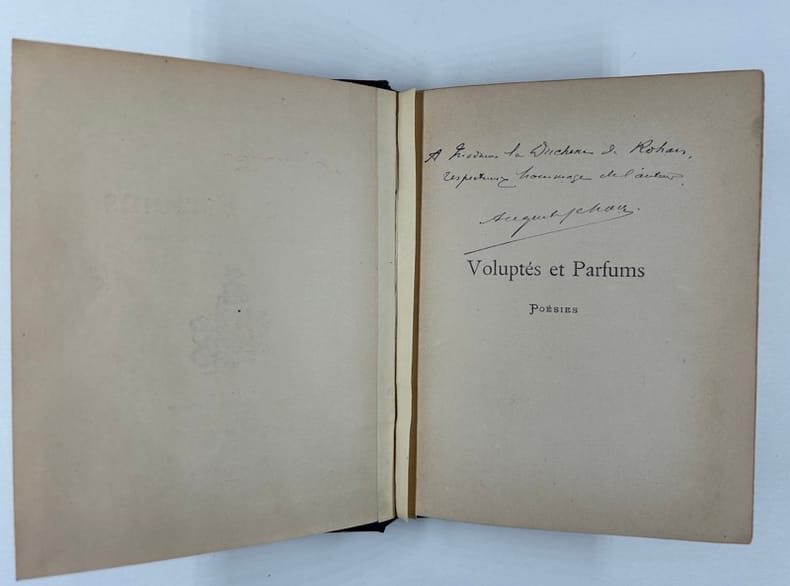 A Madame la Duchesse de Rohan,
respectueux hommage de l'auteur.
Voluptés et Parfums
POÉSIES